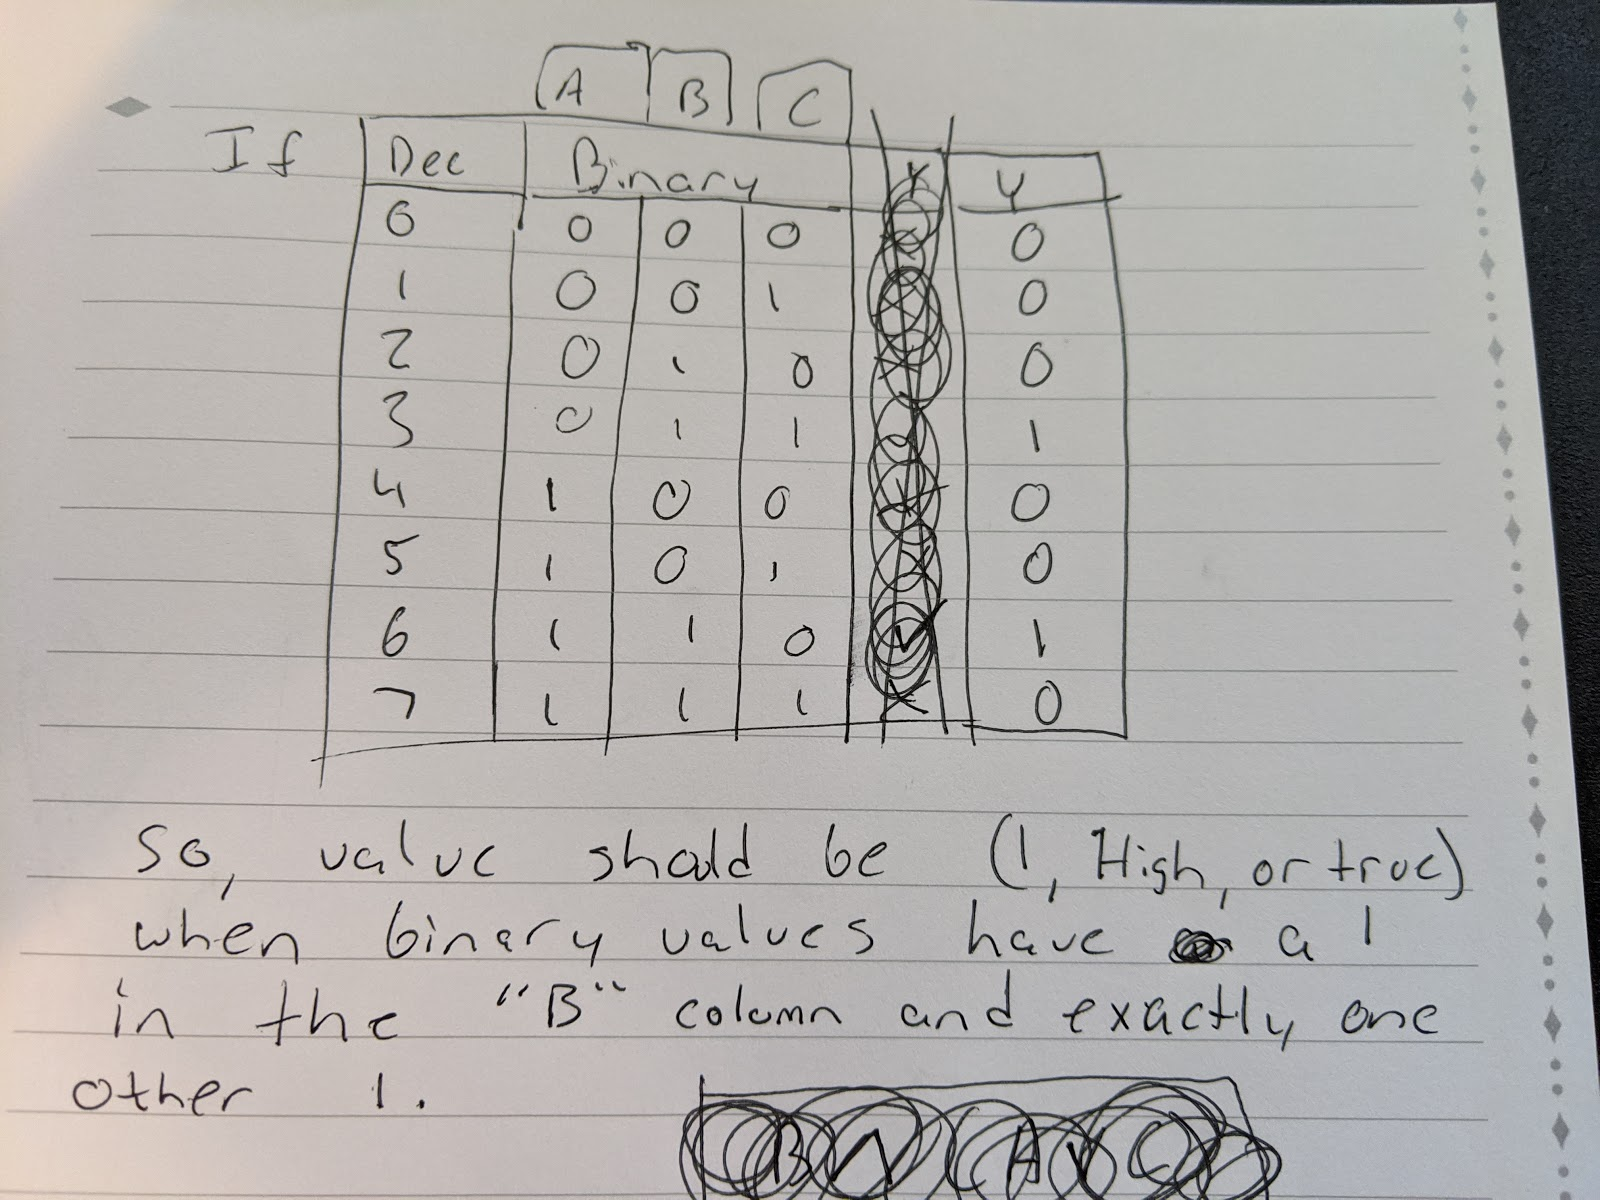 A B C
If Dec Binary Y
0 0 0 0 0
1 0 0 1 0
2 0 1 0 0
3 0 1 1 1
4 1 0 0 0
5 1 0 1 0
6 1 1 0 1
7 1 1 1 0
So, value should be (1, High, or true)
when binary values have a 1
in the "B" column and exactly one
other 1.